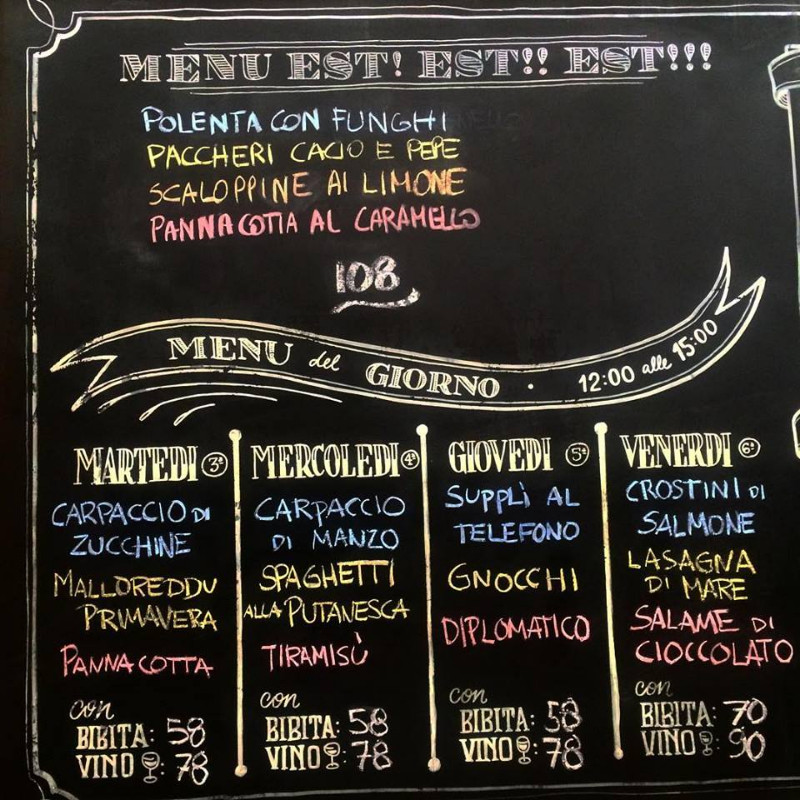 MENU EST! EST!! EST!!!
POLENTA CON FUNGHI
PACCHERI CACIO E PEPE
SCALOPPINE AI LIMONE
PANNACOTTA AL CARAMELLO
108
MENU del GIORNO · 12:00 alle 15:00
MARTEDI 3ª
CARPACCIO DI
ZUCCHINE
MALLOREDDU
PRIMAVERA
PANNA COTTA
con
BIBITA: 58
VINO: 78
MERCOLEDI 4ª
CARPACCIO
DI MANZO
SPAGHETTI
ALLA PUTANESCA
TIRAMISÙ
con
BIBITA: 58
VINO: 78
GIOVEDI 5ª
SUPPLÌ AL
TELEFONO
GNOCCHI
DIPLOMATICO
con
BIBITA: 58
VINO: 78
VENERDI 6ª
CROSTINI DI
SALMONE
LASAGNA
DI MARE
SALAME DI
CIOCCOLATO
con
BIBITA: 70
VINO: 90